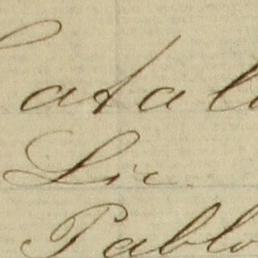 Catal
Lic.
Pablo